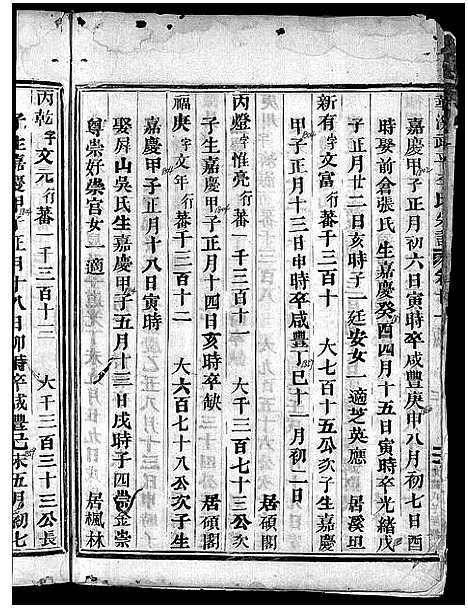 嘉慶甲子正月初六日寅時卒咸豐庚申八月初七日酉
時娶前倉張氏生嘉慶癸酉四月十五日寅時卒光緒戊
子正月廿二日亥時子一廷安女一適芝英應 居溪坦
新有字文富行蕃千三百十 大七百十五公次子生嘉慶
甲子正月十三日申時卒咸豐丁巳十一月初二日
居碩閣
丙燈字惟亮行蕃一千三十一 大千三百七十三公次
子生嘉慶甲子正月十四日亥時卒缺 居碩閣
福庚字文年行蕃千三百十二 大六百七十八公次子生
嘉慶甲子正月十八日寅時
娶屏山吳氏生嘉慶甲子五月十三日戌時子四崇金崇
尊崇好崇官女一適 居楓林
丙乾字文元行蕃一千三百十三 大千三百三十三公長
子生嘉慶甲子正月十八日卯時卒咸豐己未五月初七